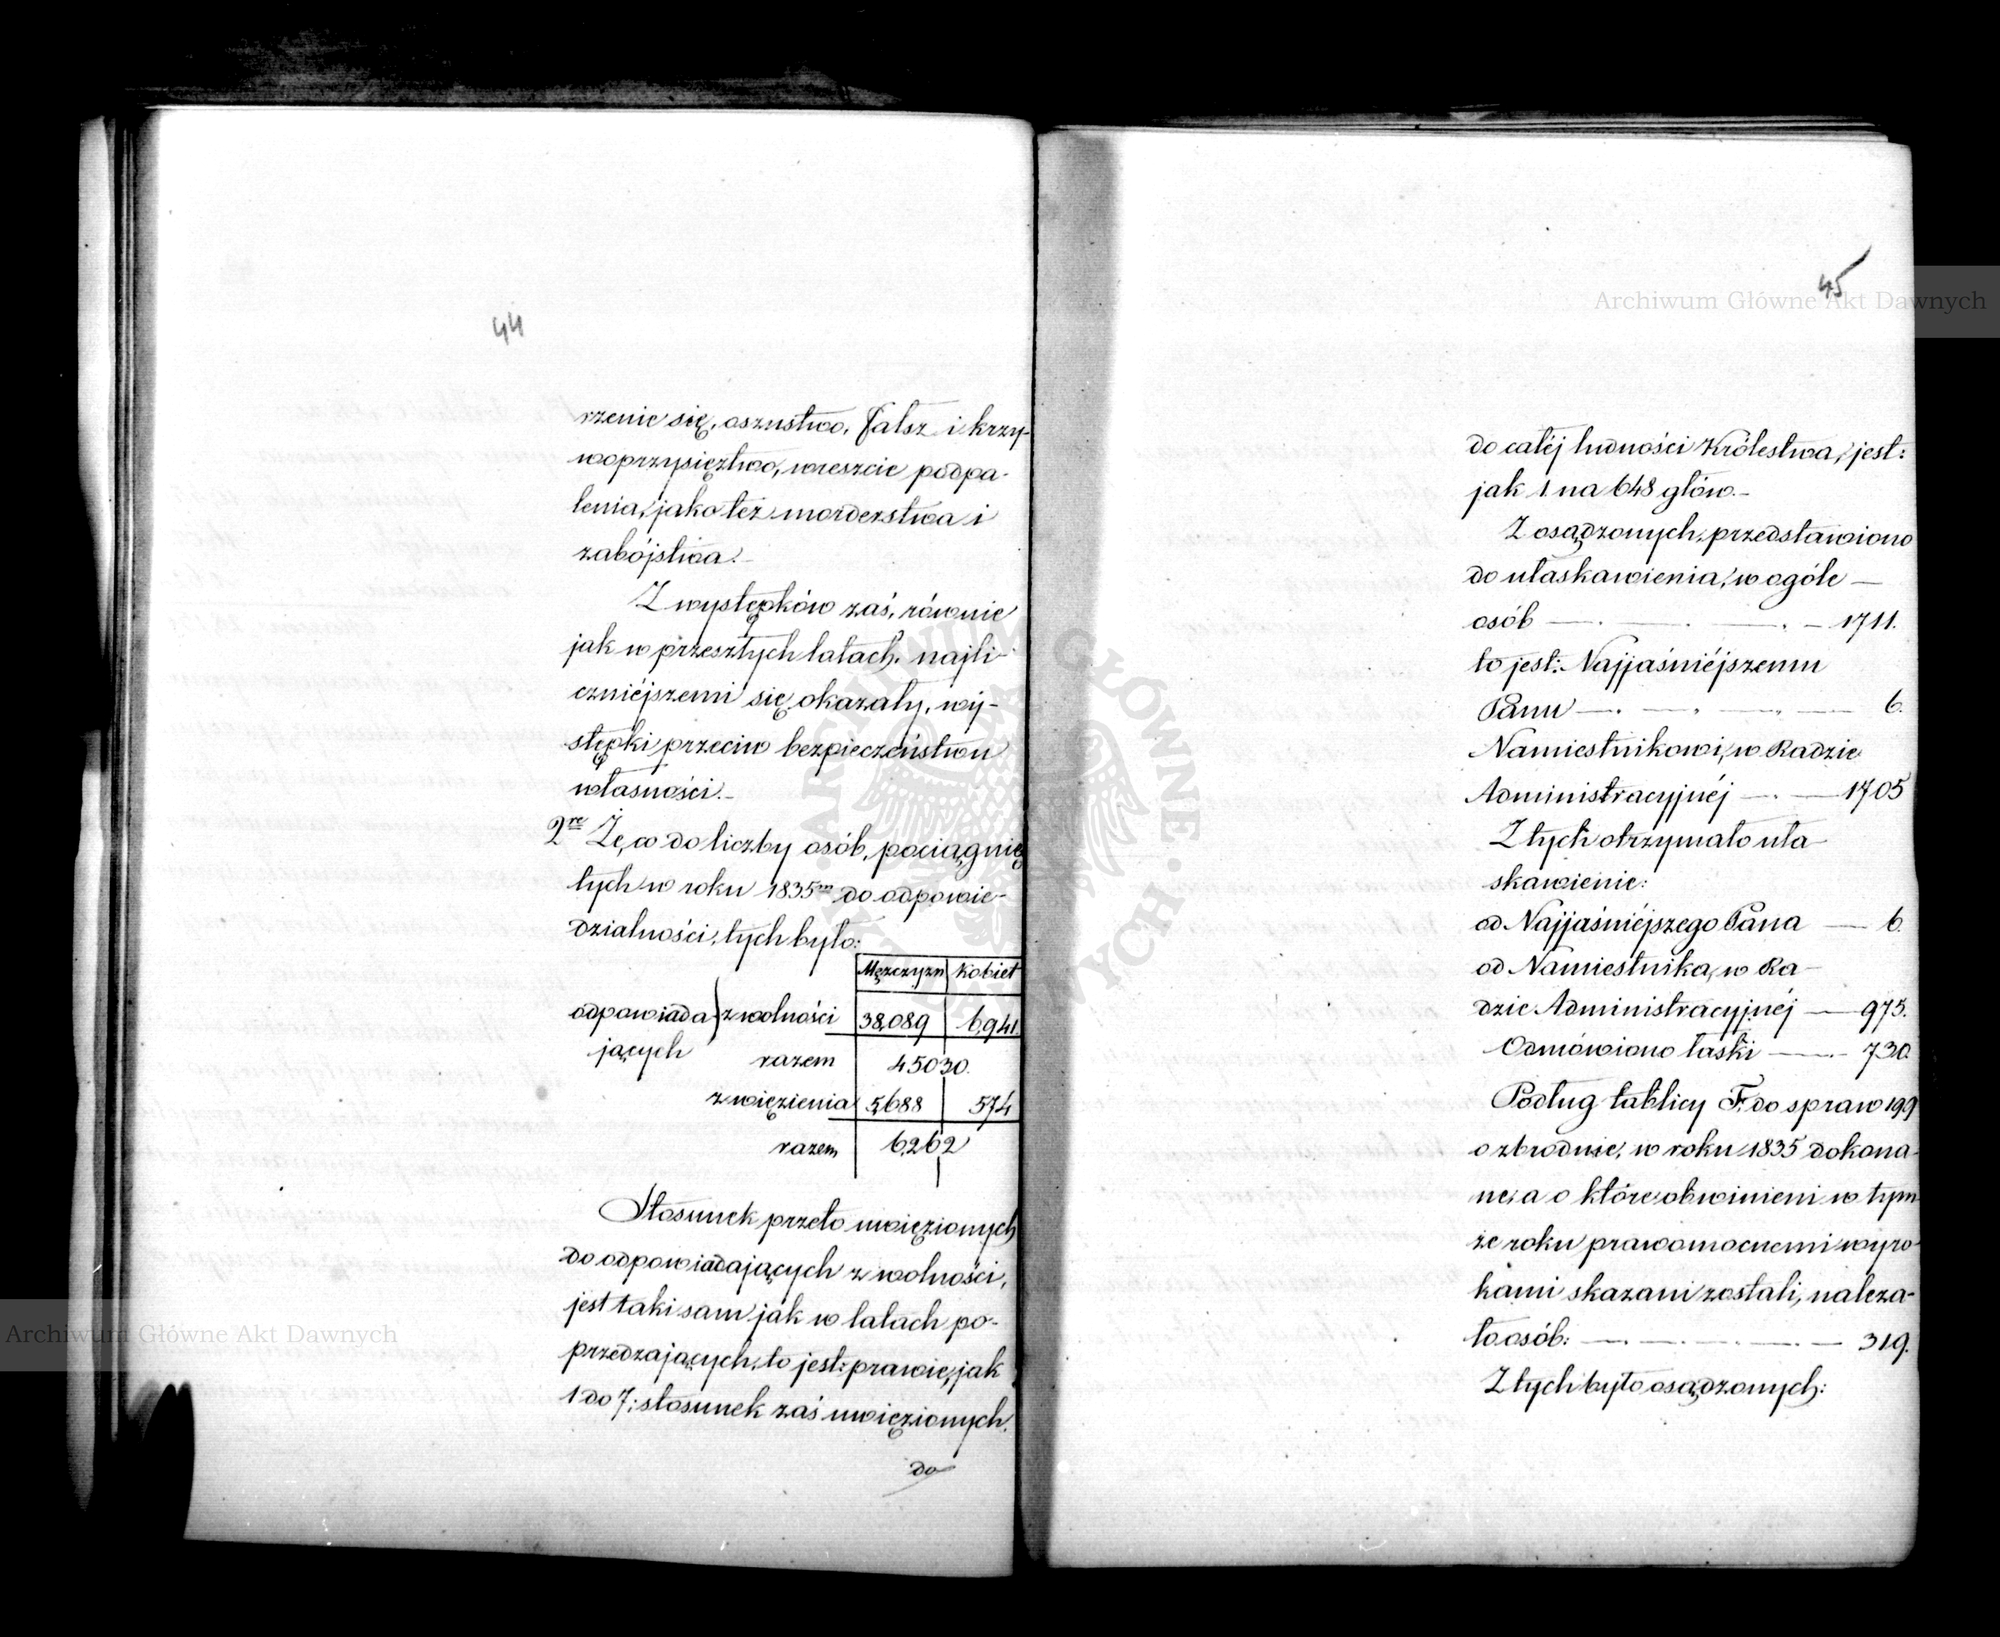 44
rzenie się, oszustwo, Fałsz i krzy-
woprzysięztwo, wreszcie podpa-
lenia, jako też morderstwa i
zabójstwa.-
Z występków zaś, równie
jak w przeszłych latach, najli-
czniéjszemi się okazały, wy-
stępki przeciw bezpieczeństwu
własności.-
2re Że, co do liczby osób, pociągnię
tych w roku 1835m do odpowie-
dzialności, tych było:
Mężczyzn Kobiet
odpowiada z wolności 38,089 6,941.
jących razem 45030.
z więzienia 5,688 574
razem 6,262
Stosunek przeto uwięzionych
do odpowiadających z wolności,
jest taki sam jak w latach po-
przedzających, to jest: prawie, jak
1 do 7; stosunek zaś uwięzionych
do
45
do całéj ludności Królestwa, jest:
jak 1 na 648 głów.-
Z osądzonych, przedstawiono
do ułaskawienia, w ogóle —
osób — 1711.
to jest: Najjaśniéjszemu
Panu — 6.
Namiestnikowi, w Radzie
Administracyjnéj — 1705
Z tych otrzymało uła-
skawienie:
od Najjaśniéjszego Pana — 6.
od Namiestnika, w Ra-
dzie Administracyjnéj — 975.
Odmówiono łaski — 730.
Podług tablicy F. do spraw 199
o zbrodnie, w roku 1835 dokona-
ne, a o które obwinieni w tym
że roku prawomocnemi wyro-
kami skazani zostali, należa-
ło osób: — 319.
Z tych było osądzonych:
Archiwum Główne Akt Dawnych
Archiwum Główne Akt Dawnych
ARCHIWUM GŁÓWNE AKT DAWNYCH